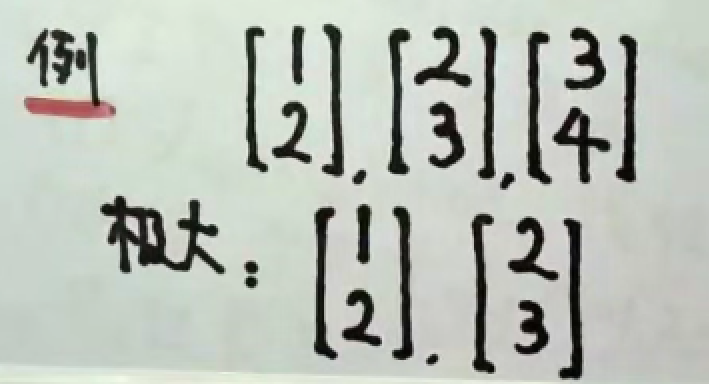 例 [1 2], [2 3], [3 4]
极大: [1 2], [2 3]